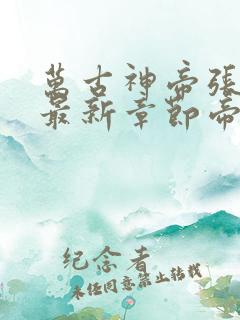 萬古神帝張
最新章節帝
纪念者
未经同意禁止转载